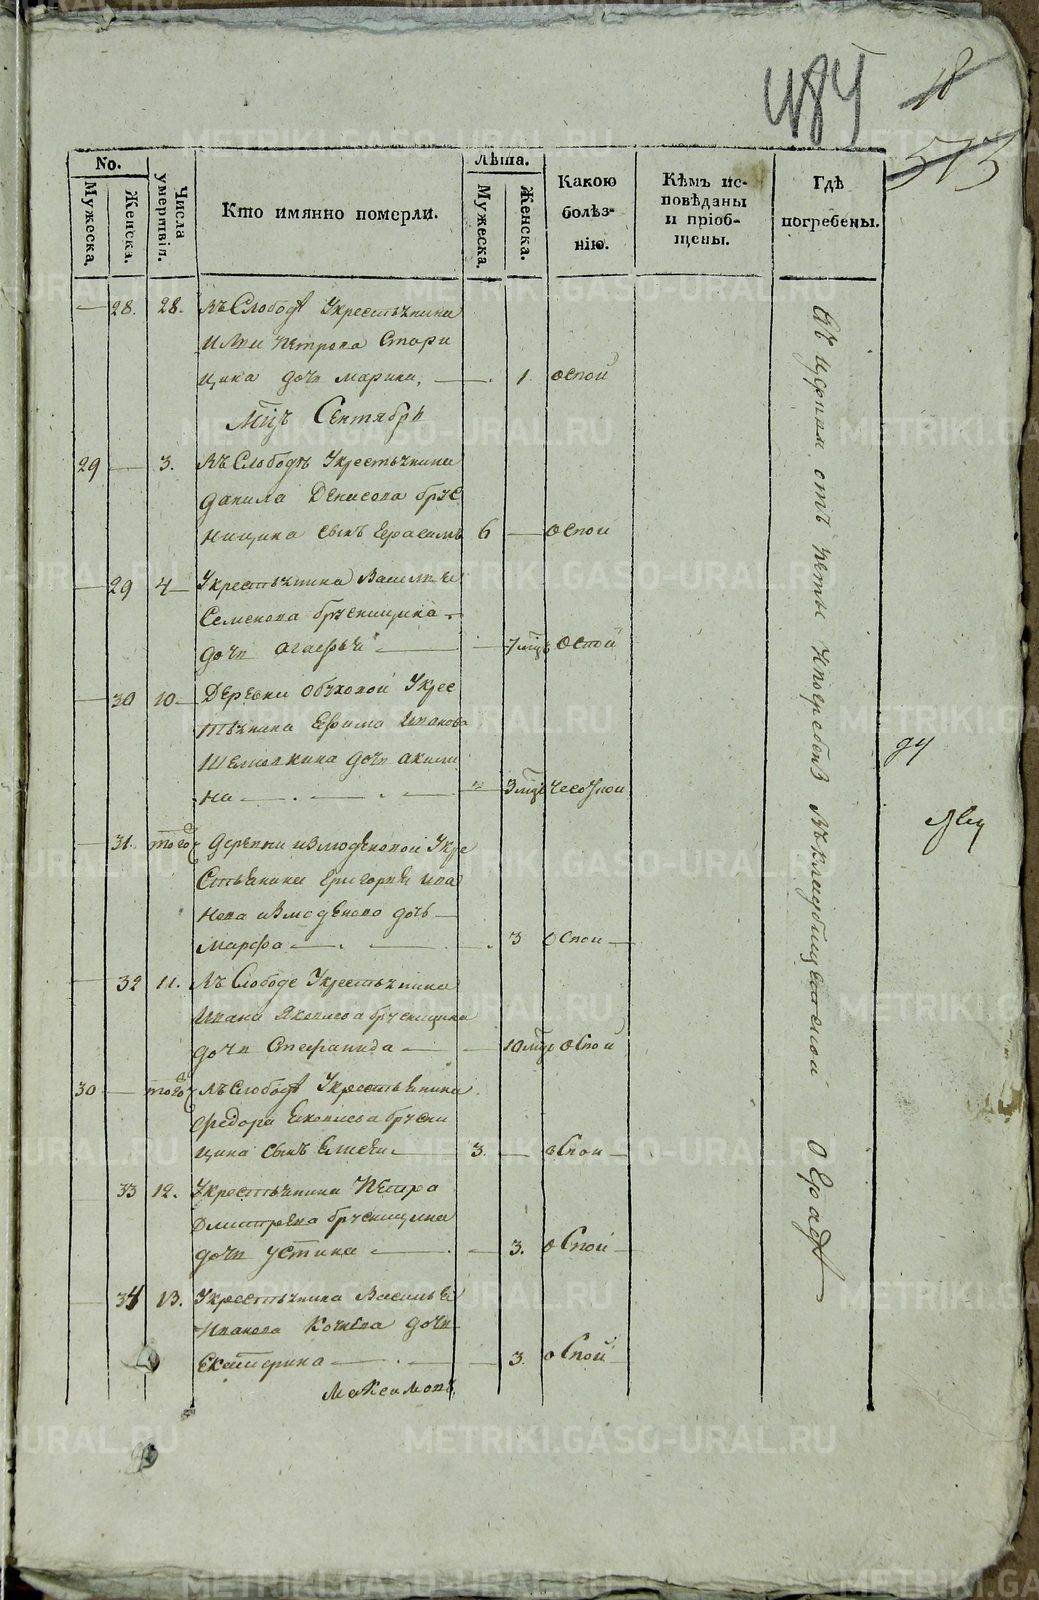 18
484
513
No.
Мужеска.
Женска.
Числа умертвія.
Кто имянно померли.
Лѣта.
Мужеска.
Женска.
Какою болѣзнію.
Кѣмъ исповѣданы и пріобщены.
Гдѣ погребены.
28. 28. Въ Слободѣ Укрестьянина
Ильи Петрова Стари
цина дочь Марина, 1. оспой
Мцъ Сентябрь
29 3. Въ Слободѣ Укрестьянина
Данила Денисова Брус
ницина сынъ Герасимъ 6 оспой
29 4 Укрестьянина Василья
Семенова Брусницина
дочь Агафья 7 мцъ оспой
30 10 Деревни Обуховой Укрес
тьянина Ефима Иванова
дочь Акили
на 3 мцъ
31. того Деревни Измоденовой Укре
стьянина Григорья Ива
нова Измоденова дочь
Марфа 3 оспой
32 11. Въ Слободе Укрестьянина
Ивана Яковлева Брусницина
дочь Стефанида 10 мцъ оспой
30 того Въ Слободѣ Укрестьянина
Федора Яковлева Брусни
цина сынъ Елисей 3. оспой
33 12. Укрестьянина Петра
Дмитрева Брусницина
дочь Устина 3. оспой
34 13. Укрестьянина Василья
Иванова Кочнева дочь
Екатерина 3. оспой
Максимовъ
METRIKI.GASO-URAL.RU